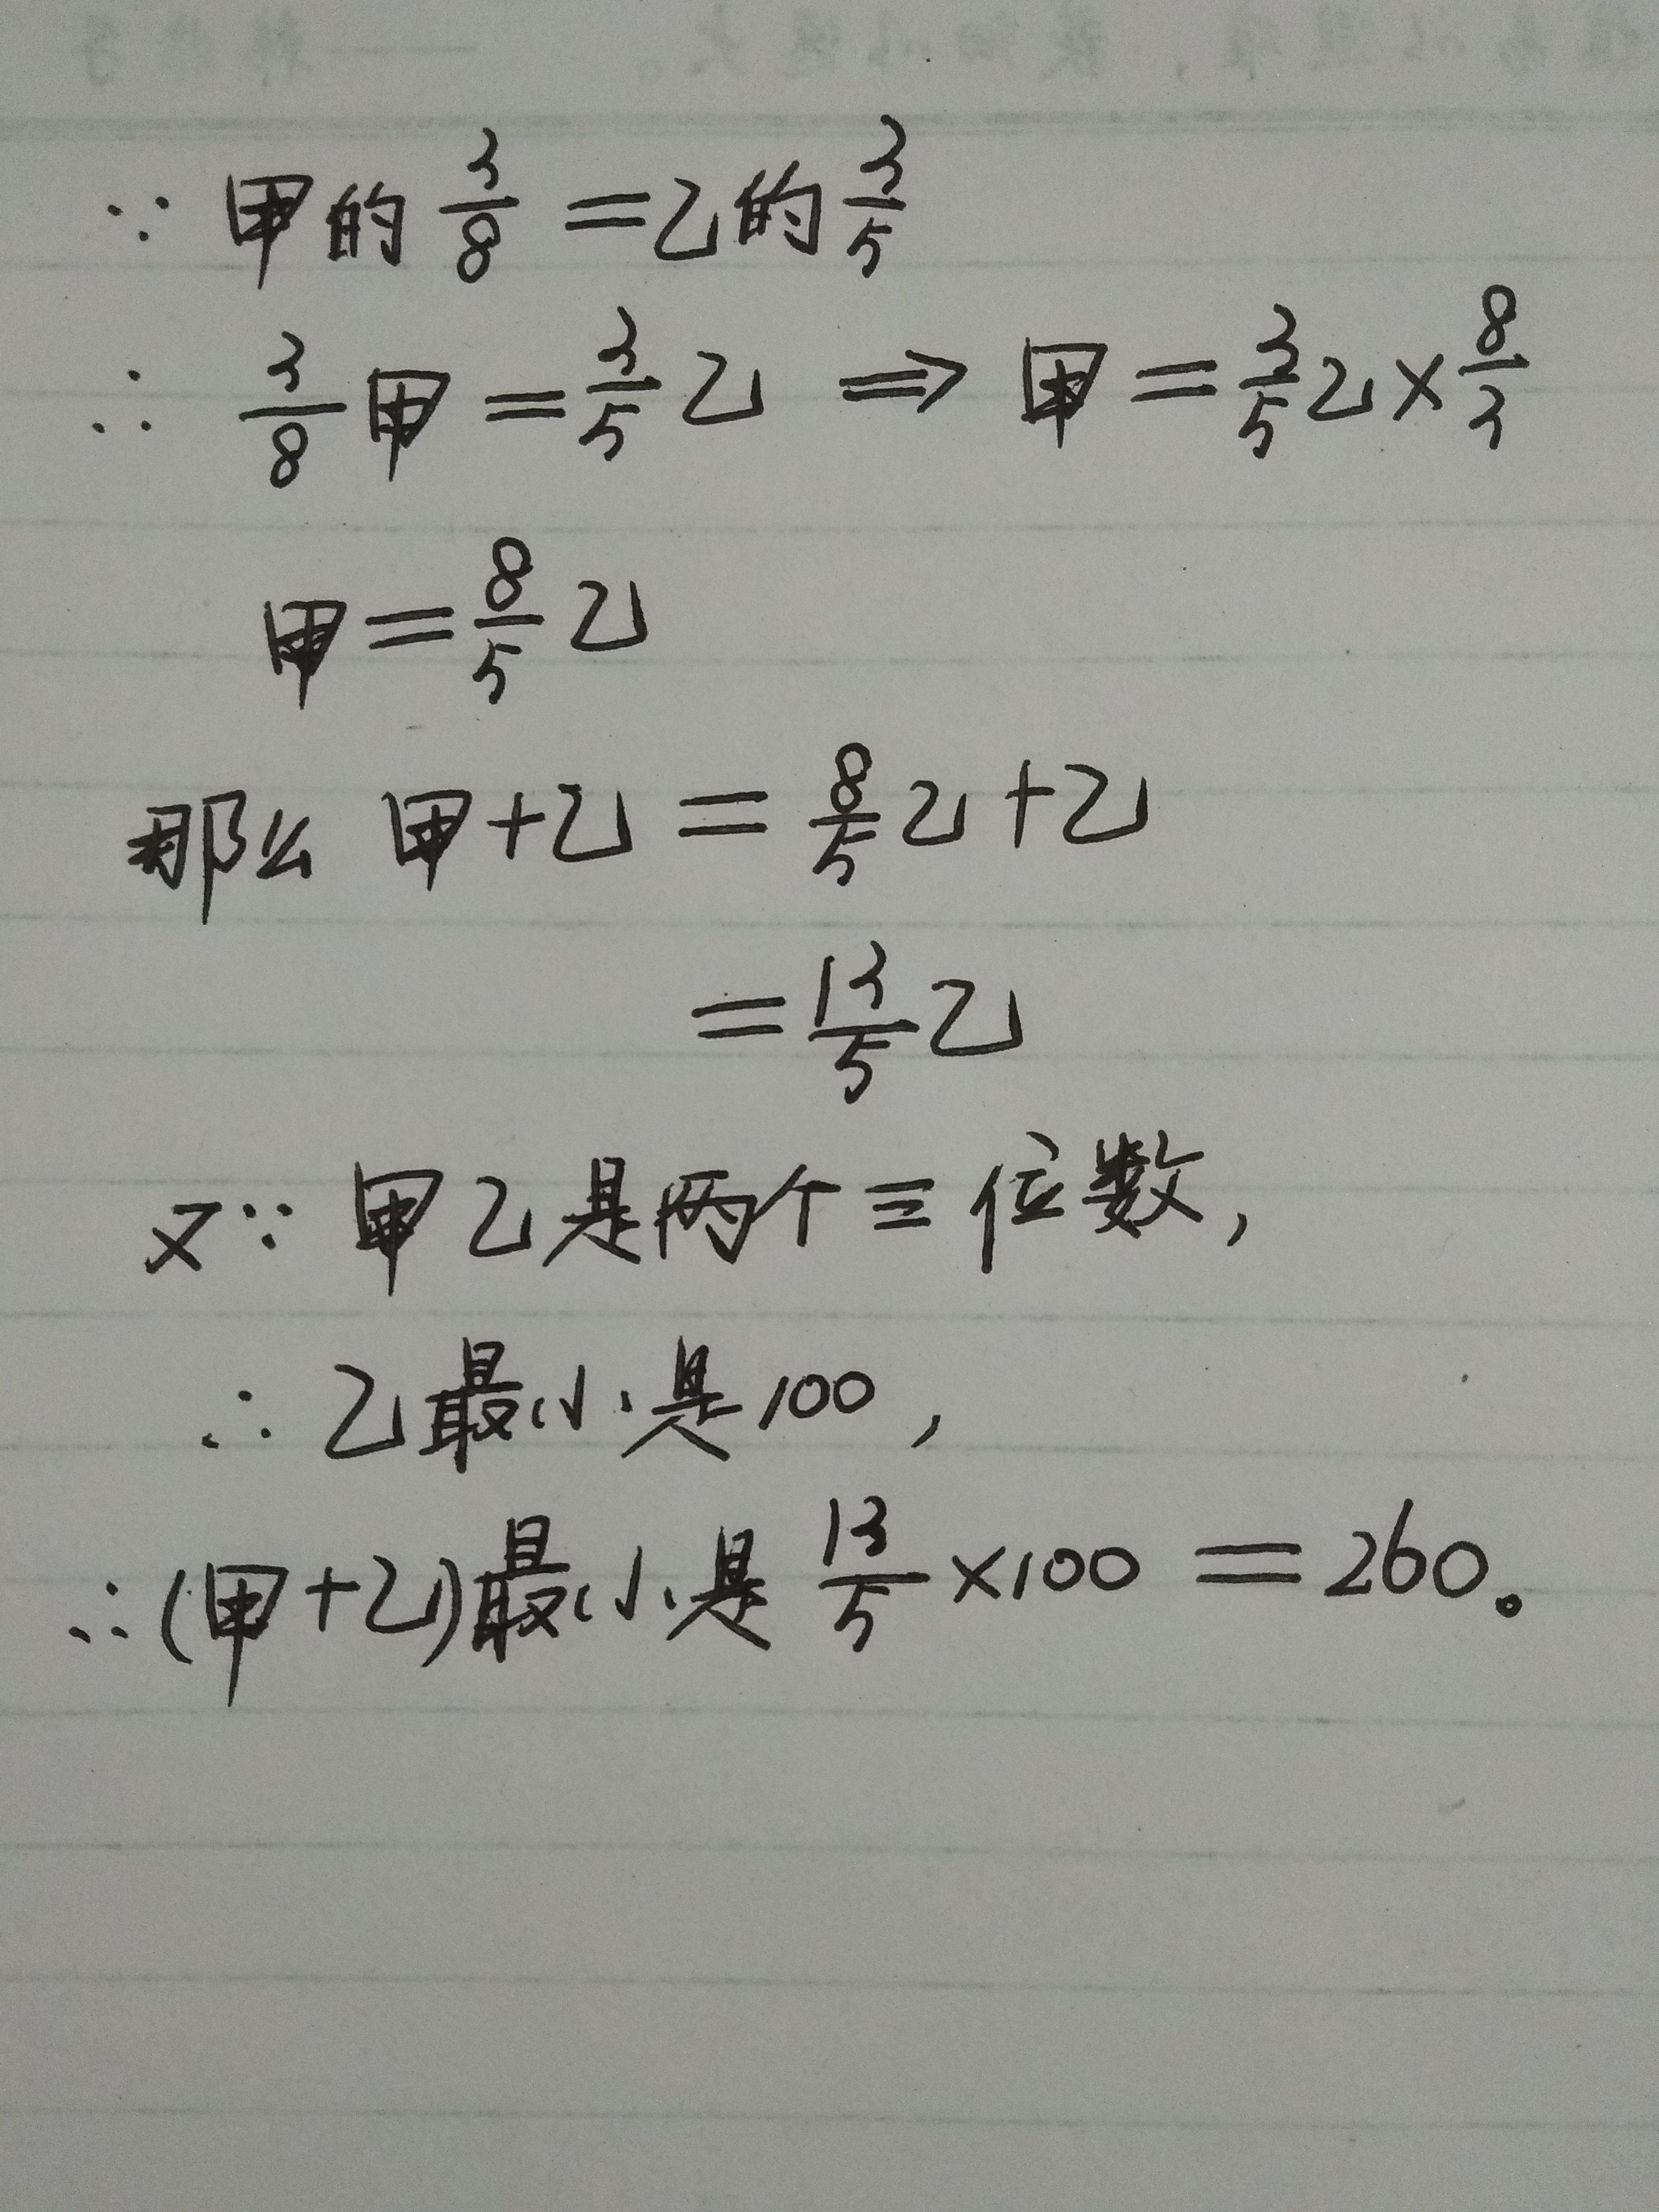 ∵ 甲的 3/8 = 乙的 3/5
∴ 3/8 甲 = 3/5 乙 ⇒ 甲 = 3/5 乙 × 8/3
甲 = 8/5 乙
那么 甲+乙 = 8/5 乙 + 乙
= 13/5 乙
又∵ 甲乙是两个三位数,
∴ 乙最小是100,
∴(甲+乙)最小是 13/5 ×100 = 260。